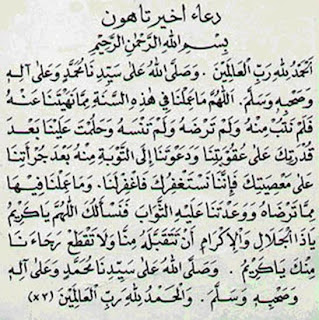 دعاء اخيرتاهون
بِسْمِ اللهِ الرَّحْمٰنِ الرَّحِيْمِ
اَلْحَمْدُ لِلهِ رَبِّ الْعَالَمِيْنَ . وَصَلَّى اللهُ عَلَى سَيِّدِنَا مُحَمَّدٍ وَعَلَى آلِهِ
وَصَحْبِهِ وَسَلَّمَ . اَللّٰهُمَّ مَا عَمِلْنَا فِي هٰذِهِ السَّنَةِ مِمَّا نَهَيْتَنَا عَنْهُ
فَلَمْ نَتُبْ مِنْهُ وَلَمْ تَرْضَهُ وَلَمْ تَنْسَهُ وَحَلُمْتَ عَلَيْنَا بَعْدَ
قُدْرَتِكَ عَلَى عُقُوْبَتِنَا وَدَعَوْتَنَا إِلَى التَّوْبَةِ مِنْهُ بَعْدَ جُرْأَتِنَا
عَلَى مَعْصِيَتِكَ فَإِنَّنَا نَسْتَغْفِرُكَ فَاغْفِرْلَنَا . وَمَا عَمِلْنَا فِيْهَا
مِمَّا تَرْضَاهُ وَوَعَدْتَنَا عَلَيْهِ الثَّوَابَ فَنَسْأَلُكَ اللّٰهُمَّ يَاكَرِيْمُ
يَاذَا الْجَلَالِ وَالْإِكْرَامِ أَنْ تَتَقَبَّلَهُ مِنَّا وَلَا تَقْطَعْ رَجَاءَ نَا
مِنْكَ يَاكَرِيْمُ . وَصَلَّى اللهُ عَلَى سَيِّدِنَا مُحَمَّدٍ وَعَلَى آلِهِ
وَصَحْبِهِ وَسَلَّمَ . وَالْحَمْدُ لِلهِ رَبِّ الْعَالَمِيْنَ (×٣)